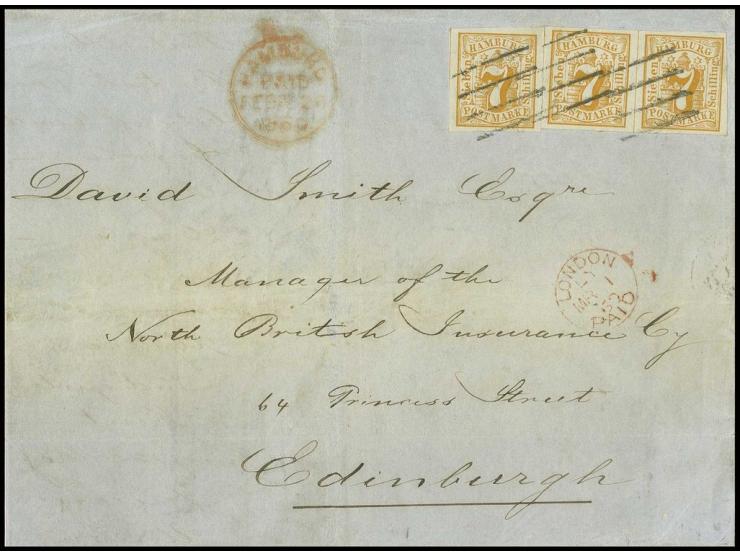 HAMBURG
PAID
HAMBURG
Sieben
7
Schilling
POSTMARKE
HAMBURG
Sieben
7
Schilling
POSTMARKE
HAMBURG
Sieben
7
Schilling
POSTMARKE
David Smith Esqre
Manager of the
North British Insurance Cy
64 Princess Street
Edinburgh
LONDON
MR 1
PAID